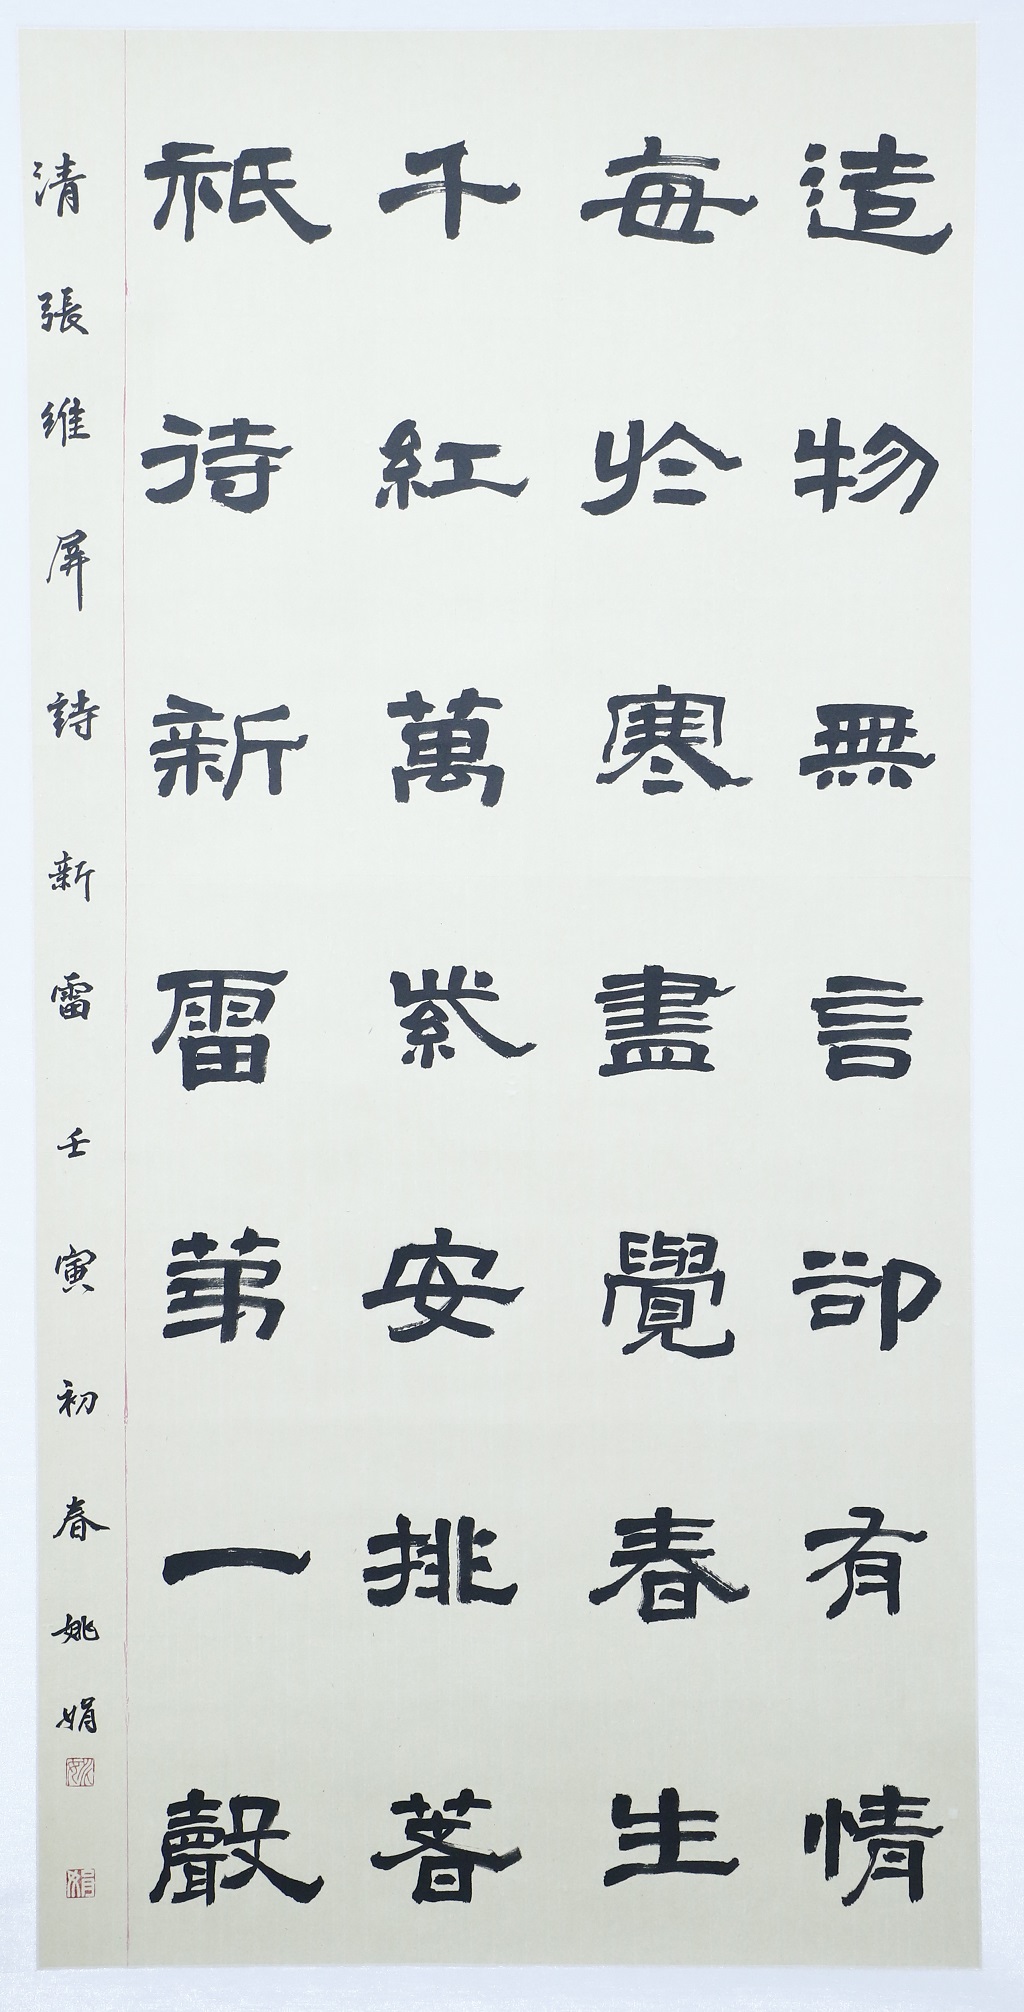 造物無言卻有情
每於寒盡覺春生
千紅萬紫安排著
祇待新雷第一聲
清張維屏詩新雷壬寅初春姚娟